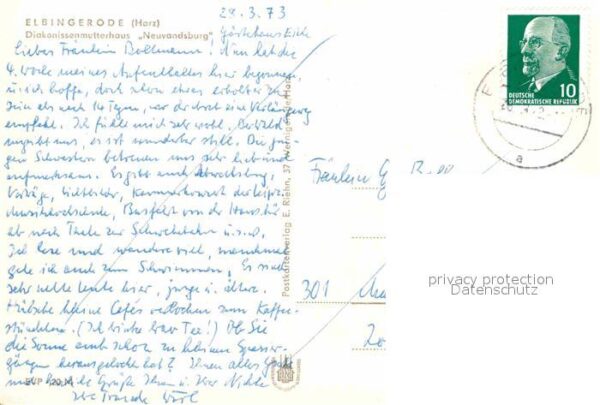 28.3.73
ELBINGERODE (Harz)
Diakonissenmutterhaus „Neuvandsburg"
Gästehaus Eiche
Liebes Fräulein Bollmann! Nun hat die
4. Woche meines Aufenthaltes hier begonnen
u. ich hoffe, doch schon etwas erholter zu
sein als nach 14 Tagen, wo der Arzt eine Verlängerung
empfahl. Ich fühle mich sehr wohl. Bergwald
umgibt uns, es ist wunderbar still. Die
Schwestern betreuen uns sehr lieb und
aufmerksam. Es gibt auch Abwechslung,
Vorträge, Lichtbilder, Kammerkonzert der
Busfahrt von der Haustür
ab nach Thale zur Schwebebahn u.s.w.
Ich lese und wandere viel, manchmal
gehe ich auch zum Schwimmen. Es sind
sehr nette Leute hier, junge u. ältere.
Hübsche kleine Cafés verlocken zum Kaffee-
stündchen. (Ich trinke brav Tee!) Ob Sie
die Sonne auch schon zu kleinen Spazier-
gängen herausgelockt hat? Ihnen alles Gute
und herzliche Grüße Ihnen u. Ihrer Nichte
Ihre Traude
BVP 20 M
Postkartenverlag E. Riehn, 37 Wernigerode/Harz
DEUTSCHE
DEMOKRATISCHE REPUBLIK
10
a
Fräulein
301
privacy protection
Datenschutz